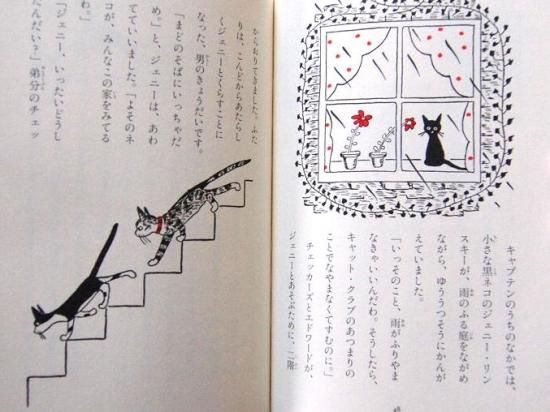 キャプテンのうちのなかでは、
小さな黒ネコのジェニー・リン
スキーが、雨のふる庭をながめ
ながら、ゆううつそうにかんが
えていました。
「いっそのこと、雨がふりやま
なきゃいいんだわ。そうしたら、
キャット・クラブのあつまりの
ことでなやまなくてすむのに。」
チェッカーズとエドワードが、
ジェニーとあそぶために、二階
からおりてきました。ふた
りは、こんどからあたらし
くジェニーとくらすことに
なった、男のきょうだいです。
「まどのそばにいっちゃだ
め。」と、ジェニーは、あわ
てていいました。「よそのネ
コが、みんなこの家をみてる
わ。」
「ジェニー、いったいどうし
たんだい？」弟分のチェッ